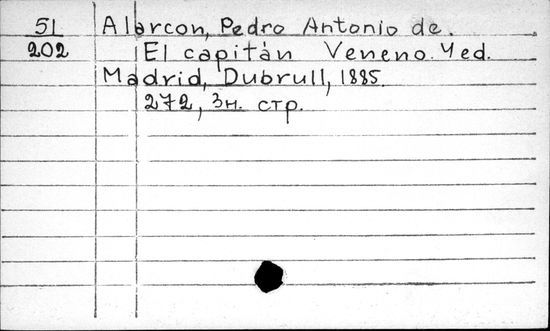 51 Alarcon, Pedro Antonio de.
202 El capitán Veneno. 4 ed.
Madrid, Dubrull, 1885.
272, 3н. стр.